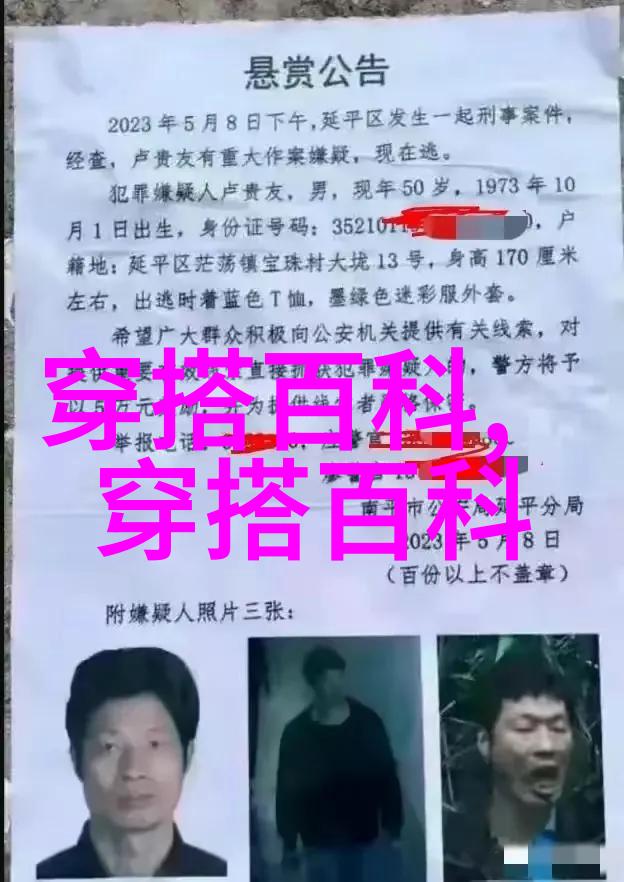 悬赏公告
2023年5月8日下午,延平区发生一起刑事案件,
经查，卢贵友有重大作案嫌疑，现在逃。
犯罪嫌疑人卢贵友，男，现年50岁，1973年10
月1日出生，身份证号码：352101，户
籍地：延平区茫荡镇宝珠村大垅13号，身高170厘米
左右，出逃时着蓝色T恤，墨绿色迷彩服外套。
希望广大群众积极向公安机关提供有关线索，对
直接抓获犯罪嫌疑人的，警方将予
以5万元
举报电话：
穿搭百科,
穿搭百科
南平市公安局延平分局
2023年5月8日
（百份以上不盖章）
附嫌疑人照片三张：